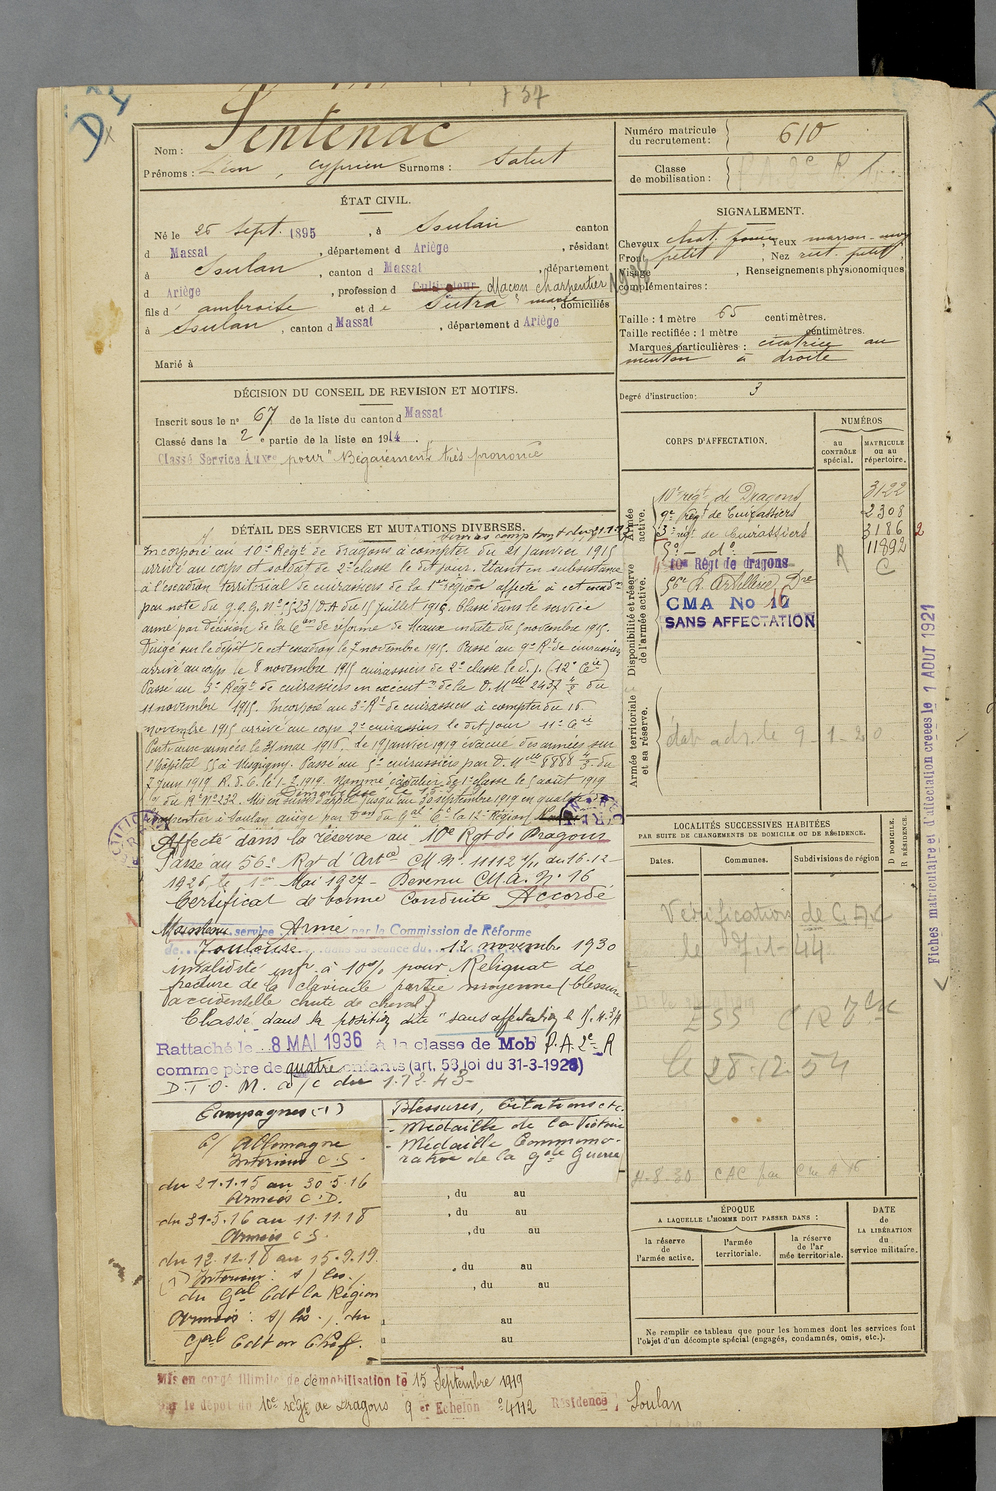 737
D
Nom : Sentenac
Prénoms : Léon, Cyprien Surnoms : Salut
Numéro matricule du recrutement : 610
Classe de mobilisation :
ÉTAT CIVIL.
Né le 26 Sept. 1895, à Soulan canton
d Massat, département d Ariège, résidant
à Soulan, canton d Massat, département
d Ariège, profession d Cultivateur Maçon charpentier
fils d' ambroise et de Sutra marie, domiciliés
à Soulan, canton d Massat, département d Ariège
Marié à
SIGNALEMENT.
Cheveux chat. foncé, Yeux marron
Front petit, Nez rect. petit,
Visage, Renseignements physionomiques
complémentaires :
Taille : 1 mètre 65 centimètres.
Taille rectifiée : 1 mètre centimètres.
Marques particulières : cicatrice au
menton à droite
Degré d'instruction : 3
DÉCISION DU CONSEIL DE REVISION ET MOTIFS.
Inscrit sous le n° 67 de la liste du canton d Massat
Classé dans la 2e partie de la liste en 1914.
Classé Service Auxre pour "Bégaiement" très prononcé
CORPS D'AFFECTATION.
NUMÉROS
au CONTRÔLE spécial.
MATRICULE ou au répertoire.
Armée active.
10e régt de Dragons 3122
9e Regt de Cuirassiers 2308
3e régt de Cuirassiers 3186 2
5e — do — 11892
Disponibilité et réserve de l'armée active.
10me Régt de dragons R C
56e R. Artillerie Dre
CMA No 16
SANS AFFECTATION
Armée territoriale et sa réserve.
9-1-20
DÉTAIL DES SERVICES ET MUTATIONS DIVERSES.
Incorporé au 10e Régt de dragons à compter du 21 janvier 1915
arrivé au corps et soldat de 2e classe le dit jour. Etant en subsistance
à l'escadron territorial de cuirassiers de la 1ere région affecté à cet escadn
par note du G.Q.G. No 5523/D.A du 15 juillet 1915. Classé dans le service
armé par décision de la Con de réforme de Meaux en date du 5 novembre 1915.
Dirigé sur le dépôt de cet escadron le 7 novembre 1915. Passé au 9e Rt de cuirassiers
arrivé au corps le 8 novembre 1915 cuirassier de 2e classe le d. j. (12e Cie)
Passé au 3e Régt de cuirassiers en exécutn de la D. Mlle 2437 du
11 novembre 1915. Incorporé au 3e Rt de cuirassiers à compter du 16
novembre 1915 arrivé au corps 2e cuirassiers le dit jour 11e
Parti aux armées le 31 mai 1916, le 19 janvier 1919 évacué des armées sur
l'hôpital 55 à Mogrigny. Passé au 5e cuirassiers par D. Mlle 8888 du
7 juin 1919 R. d. C. le 1.7.1919. Nommé cavalier de 1e classe le 5 août 1919
du Rt No 232. Mis en sursis d'appel jusqu'au 30 septembre 1919 en qualité
charpentier à Soulan, ariège par Don du Gal Ct la 12e Région
Affecté dans la réserve au 10e Rgt de Dragons
Passé au 56e Rgt d'Artie CM No 11112 du 16-12
1926, le 1er Mai 1927 - Devenu C.M.A. No 16
Certificat de bonne conduite Accordé
Maintenu service Armé par la Commission de Réforme
de Toulouse dans sa séance du 12 novembre 1930
invalidité infr. à 10% pour Reliquat de
fracture de la clavicule partie moyenne (blessure
accidentelle chute de cheval)
Classé dans la position dite "sans affectation" le 15.4.34
Rattaché le 8 MAI 1936 à la classe de Mob P.A. 2e R
comme père de quatre enfants (art. 58 loi du 31-3-1928)
D.T.O.M. a/c du 1.12.43-
LOCALITÉS SUCCESSIVES HABITÉES
PAR SUITE DE CHANGEMENTS DE DOMICILE OU DE RÉSIDENCE.
Dates.
Communes.
Subdivisions de région
D DOMICILE. R RÉSIDENCE.
Vérification de
le 7-1-44
ESS
le 28.12.54
4-8-30 CAC par Cm A 16
Campagnes (-1)
C/ Allemagne
Intérieur C.S.
du 21.1.15 au 30.5.16
Armées C.D.
du 31.5.16 au 11.11.18
Armées C.S.
du 12.11.18 au 15.9.19
(1) Intérieur : s/ les
du Gal Cdt la Région
Armées : s/ les du
Gal Cdt en Chef.
Blessures, Citations etc.
- Médaille de la Victoire
- Médaille Commémo-
rative de la Gde Guerre
, du au
, du au
, du au
, du au
, du au
au
au
ÉPOQUE
A LAQUELLE L'HOMME DOIT PASSER DANS :
la réserve de l'armée active.
l'armée territoriale.
la réserve de l'armée territoriale.
DATE de LA LIBÉRATION du service militaire.
Ne remplir ce tableau que pour les hommes dont les services font
l'objet d'un décompte spécial (engagés, condamnés, omis, etc.).
Mis en congé illimité de démobilisation le 15 Septembre 1919
par le dépôt du 10e régt de Dragons 9er Echelon 4112 Résidence Soulan
Fiches matriculaire et d'affectation créées le 1 AOUT 1921